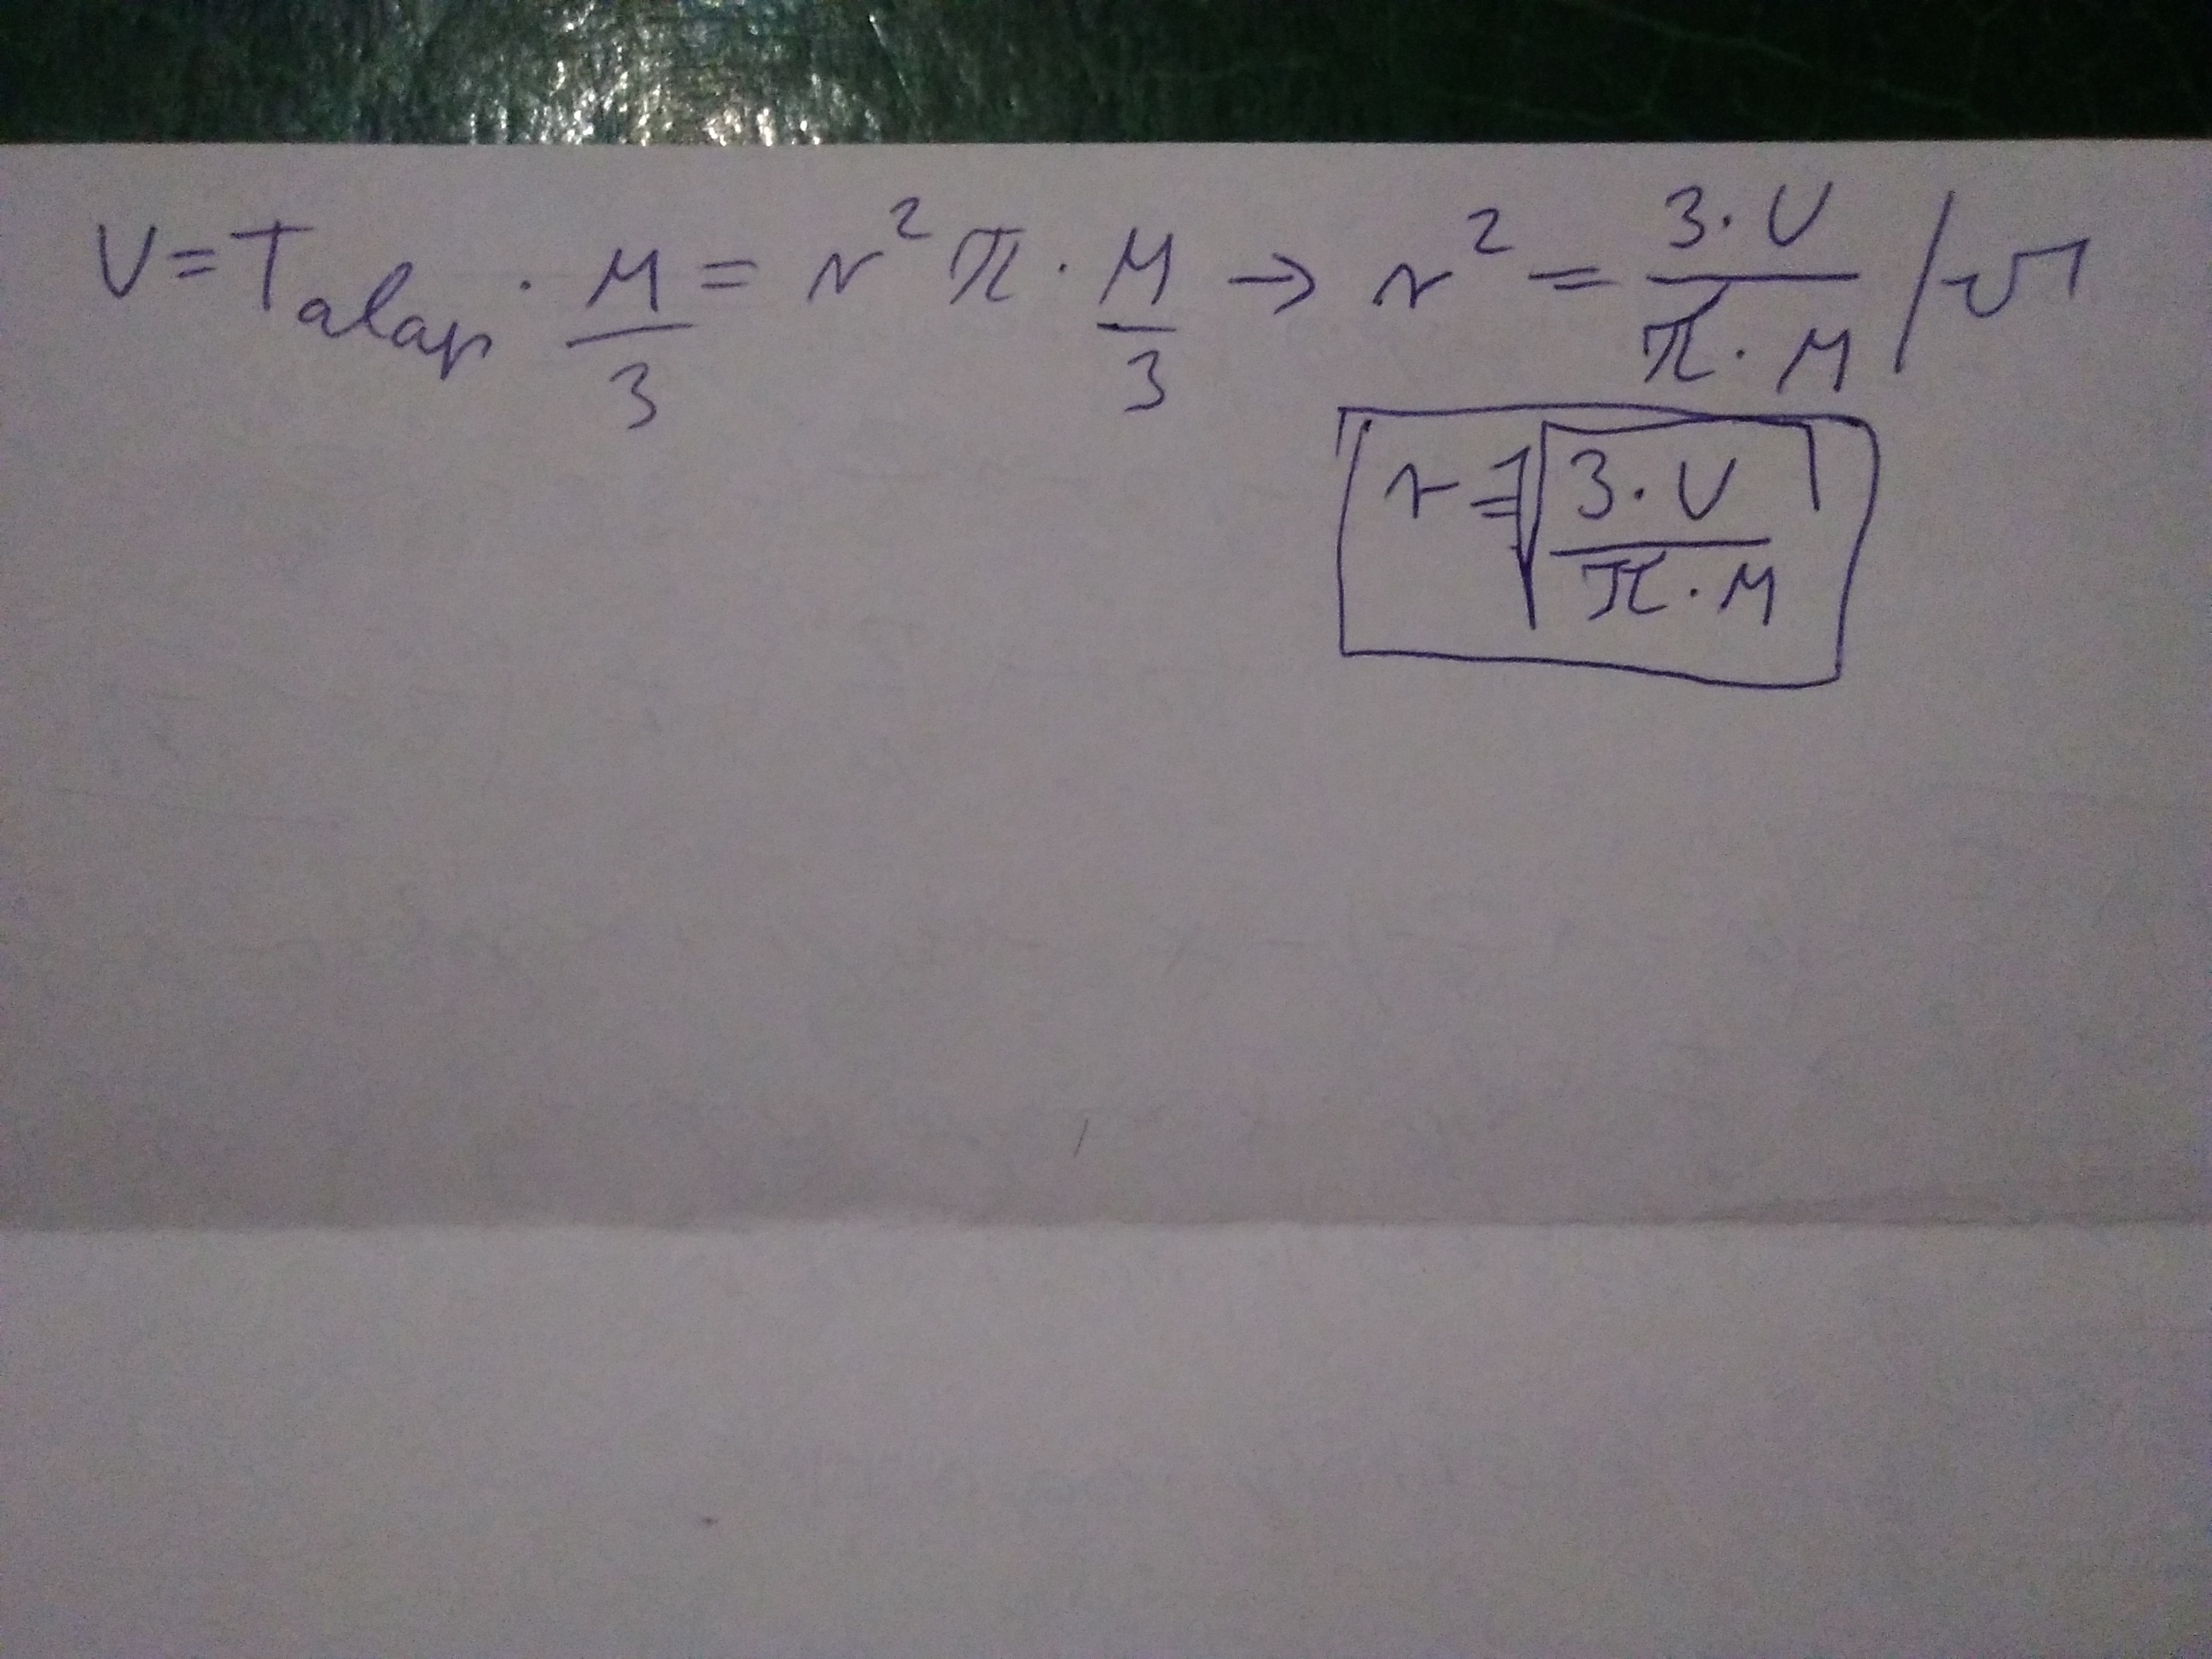 V = T_alap · M/3 = r² π · M/3 → r² = 3·V / π·M /√
r = √(3·V / π·M)